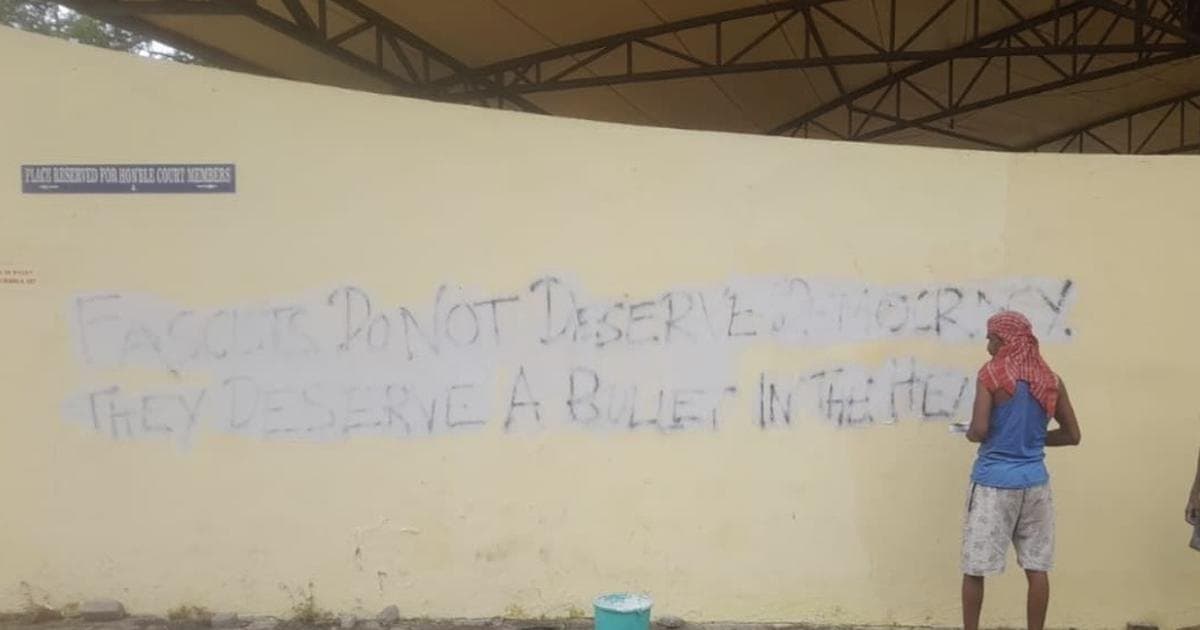 PLACE RESERVED FOR HON'BLE COURT MEMBERS
FASCISTS DO NOT DESERVE DEMOCRACY.
THEY DESERVE A BULLET IN THE HEA